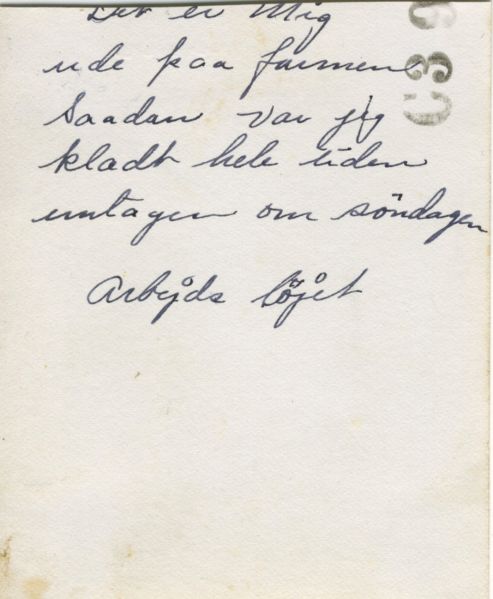 Det er Mig
ude paa farmen
Saadan var jeg
kladt hele tiden
untagen om söndagen
Arbejds töjet
C39